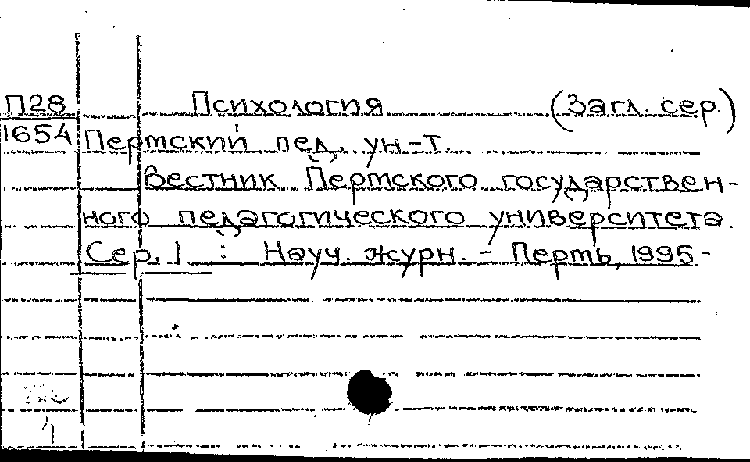 П28 Психология (Загл. сер.)
1654 Пермский пед. ун-т.
Вестник Пермского государствен-
ного педагогического университета.
Сер. 1 : Науч. журн. - Пермь, 1995-